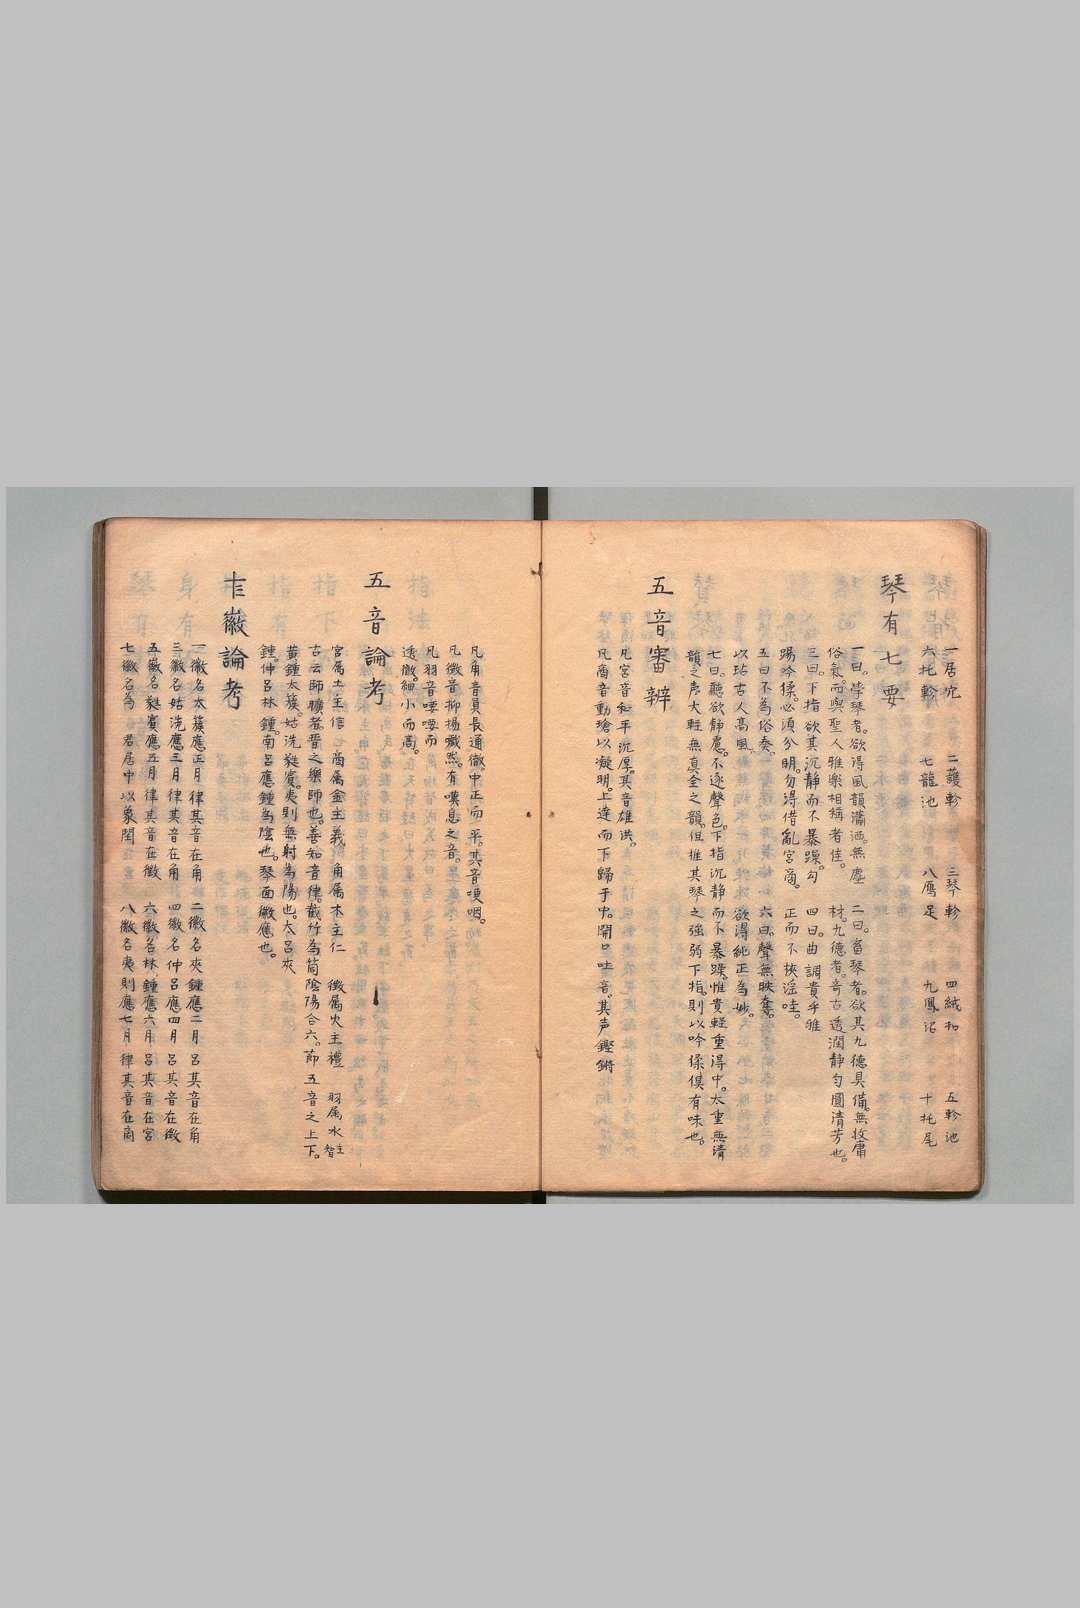 一居宂　二護軫　三琴軫　四絨扣　五軫池
六托軫　七龍池　八鴈足　九鳳沼　十托尾
琴有七要
一曰。学琴者。欲得風韻瀟洒。無塵　二曰。畜琴者。欲其九德具備。無收庸
俗氣。而與聖人雅樂相稱者佳。　材。九德者。奇古透潤靜匀圓清芳也。
三曰。下指欲其沉靜而不暴躁。勾　四曰。曲調貴乎雅
踢吟揉。必須分明。勿得借亂宮商。　正而不挾淫哇。
五曰不為俗奏。　六曰。聲無映奪。
以玷古人高風。　欲得純正為妙。
七曰。聽欲靜慮。不逐聲色。下指沉靜而不暴躁。惟貴軽重得中。太重無清
韻之声大軽無真全之韻。但推其琴之強弱下指。則以吟猱俱有味也。
五音審辨
凡宮音和平沉厚。其音雄洪。
凡商音動瑲以凝明。上達而下歸于中。開口吐音。其声鏗鏘
凡角音員長通徹。中正而平。其音哽咽。
凡徵音抑揚嘁然。有嘆息之音。
凡羽音嚶嚶而
透徹。細小而高。
五音論考
宮属土主信　商属金主義　角属木主仁　徵属火主禮　羽属水主智
古云師曠者晋之樂師也。善知音律。截竹為筒隂陽合六。莭五音之上下。
黄鍾太簇。姑洗蕤賓。夷則無射為陽也。大呂夾
鍾。仲呂林鍾。南呂應鍾為隂也。琴面徽應也。
徽論考
一徽名太簇應正月律其音在角　二徽名夾鍾應二月呂其音在角
三徽名姑洗應三月律其音在角　四徽名仲呂應四月呂其音在徵
五徽名蕤賓應五月律其音在徵　六徽名林鍾應六月呂其音在宮
七徽名為君居中以象閏　八徽名夷則應七月律其音在商